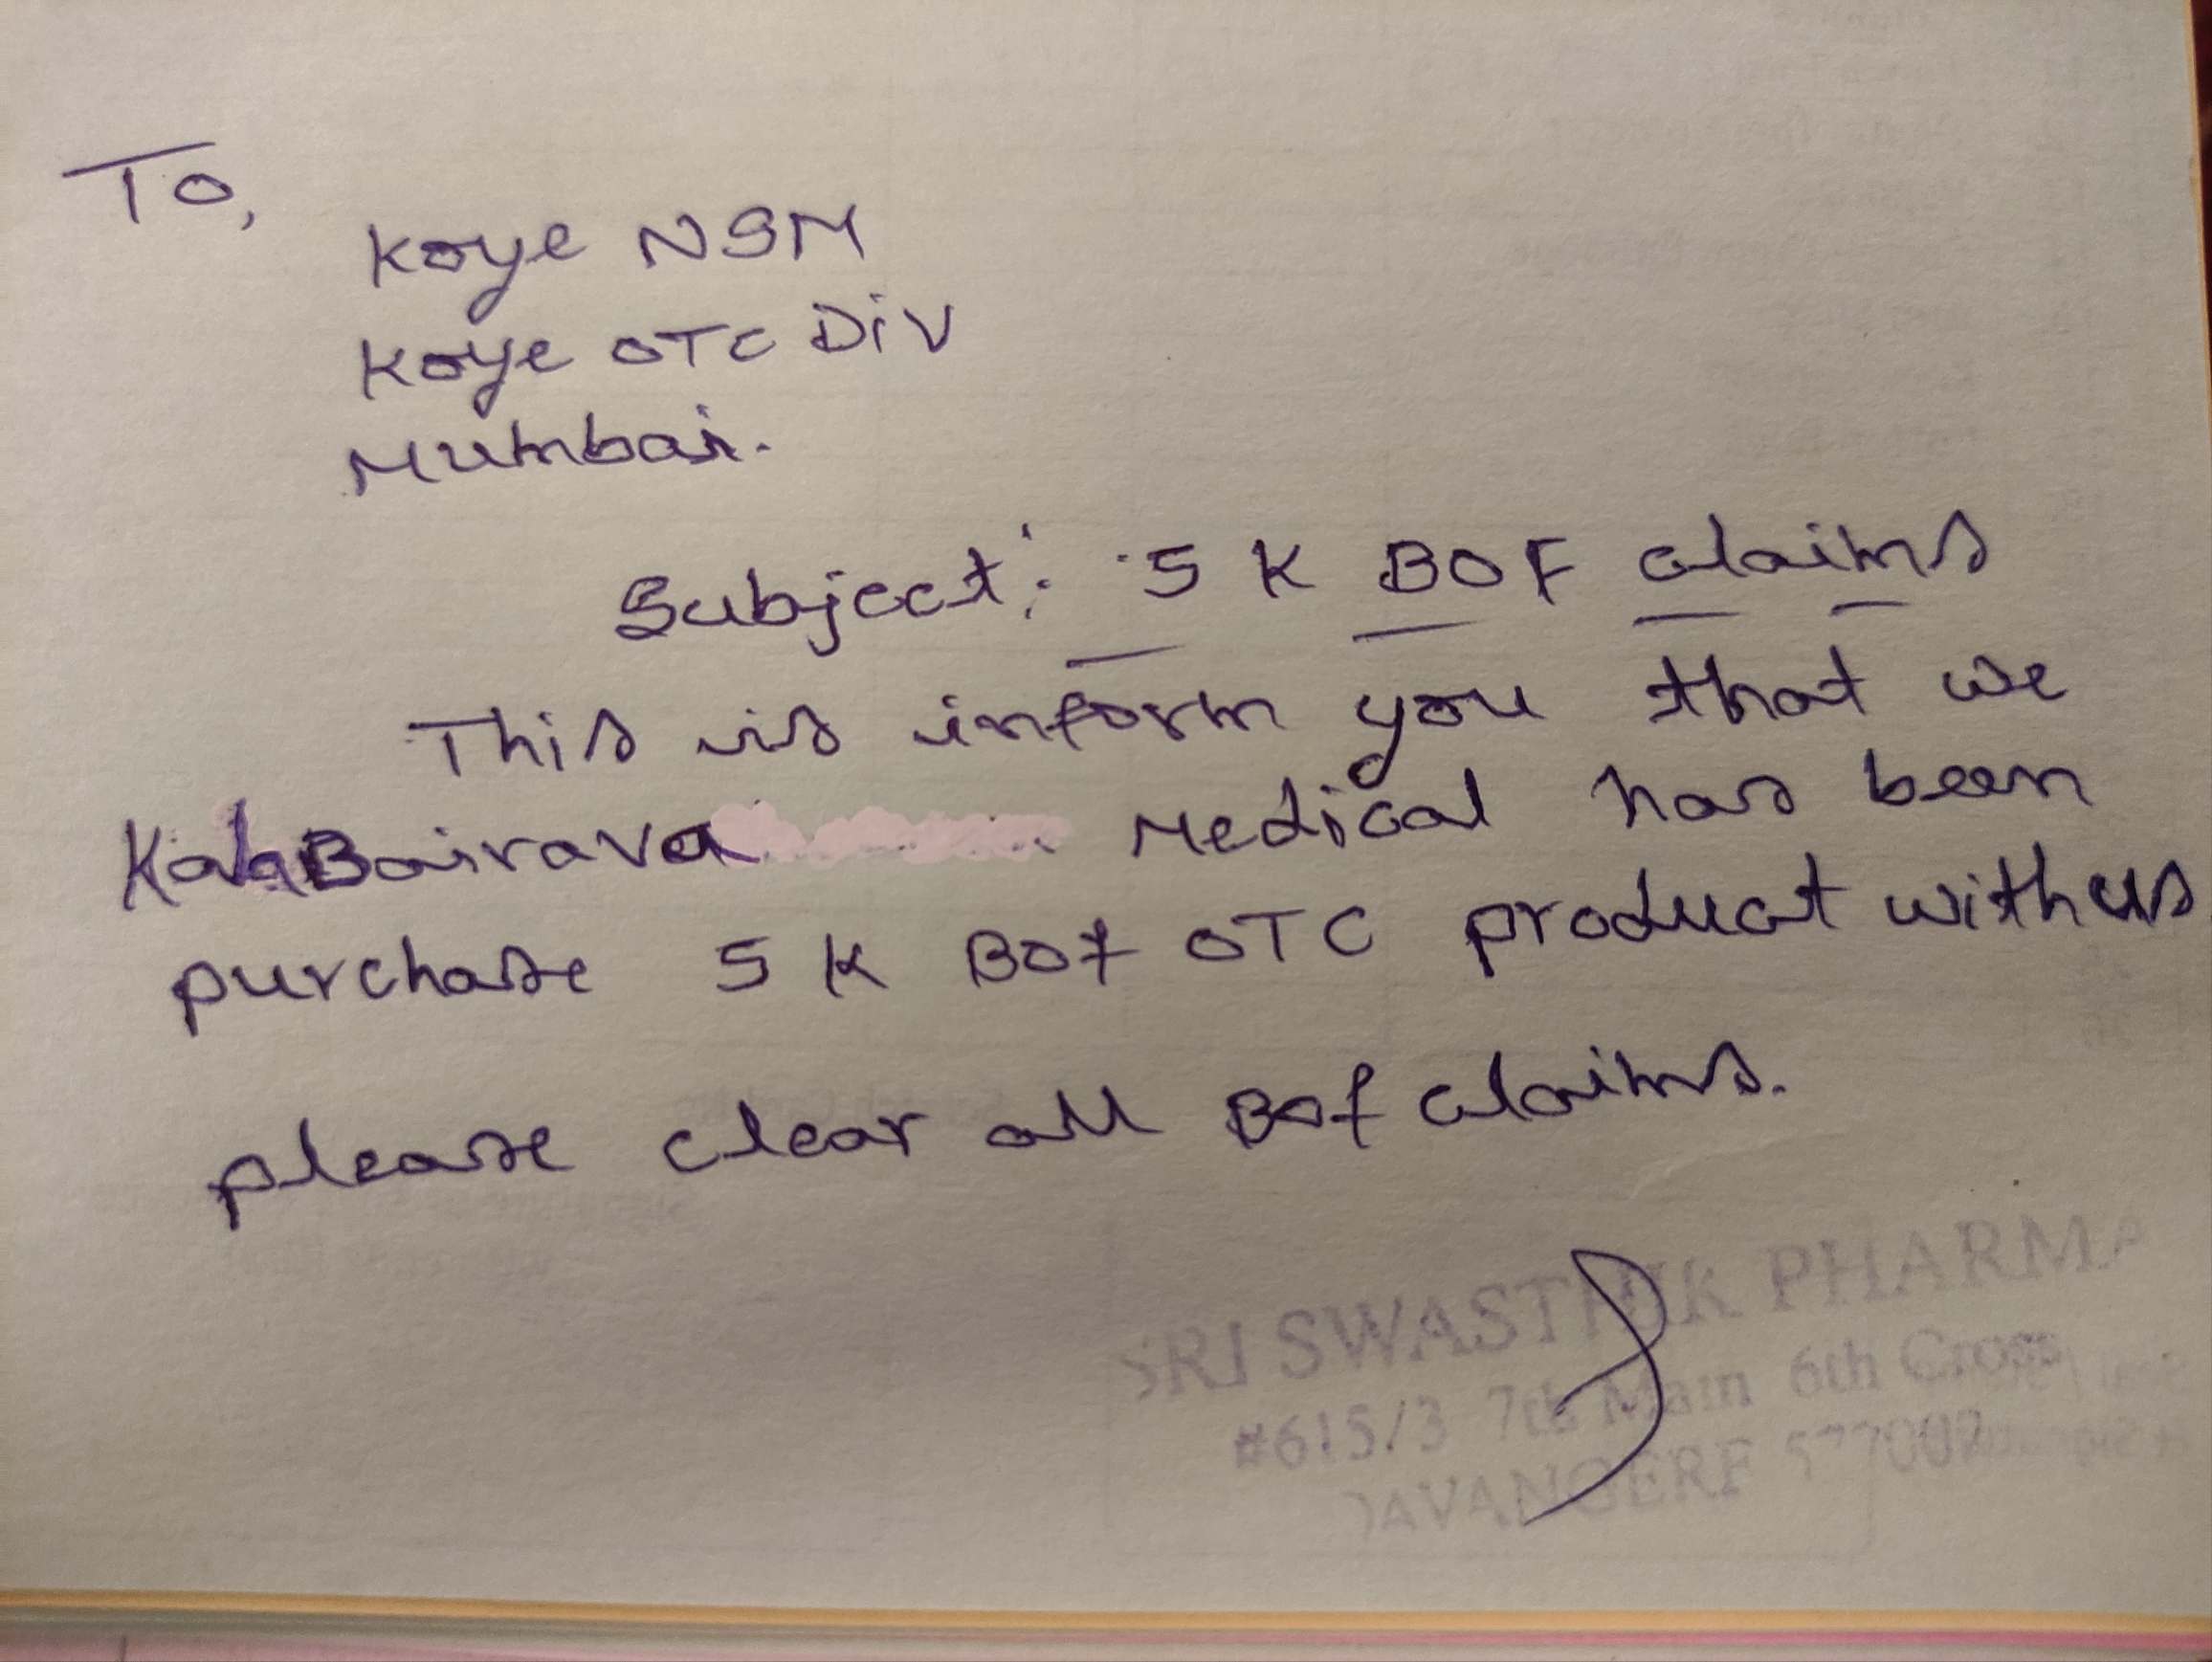 To,
Koye NSM
Koye OTC Div
Mumbai.
Subject: 5 K BOF claims
This is inform you that we
KalaBairava Medical has been
purchase 5 K BOf OTC product with us
please clear all BOf claims.
SRI SWASTHIK PHARMA
#615/3 7th Main 6th Cross
DAVANGERE 577002